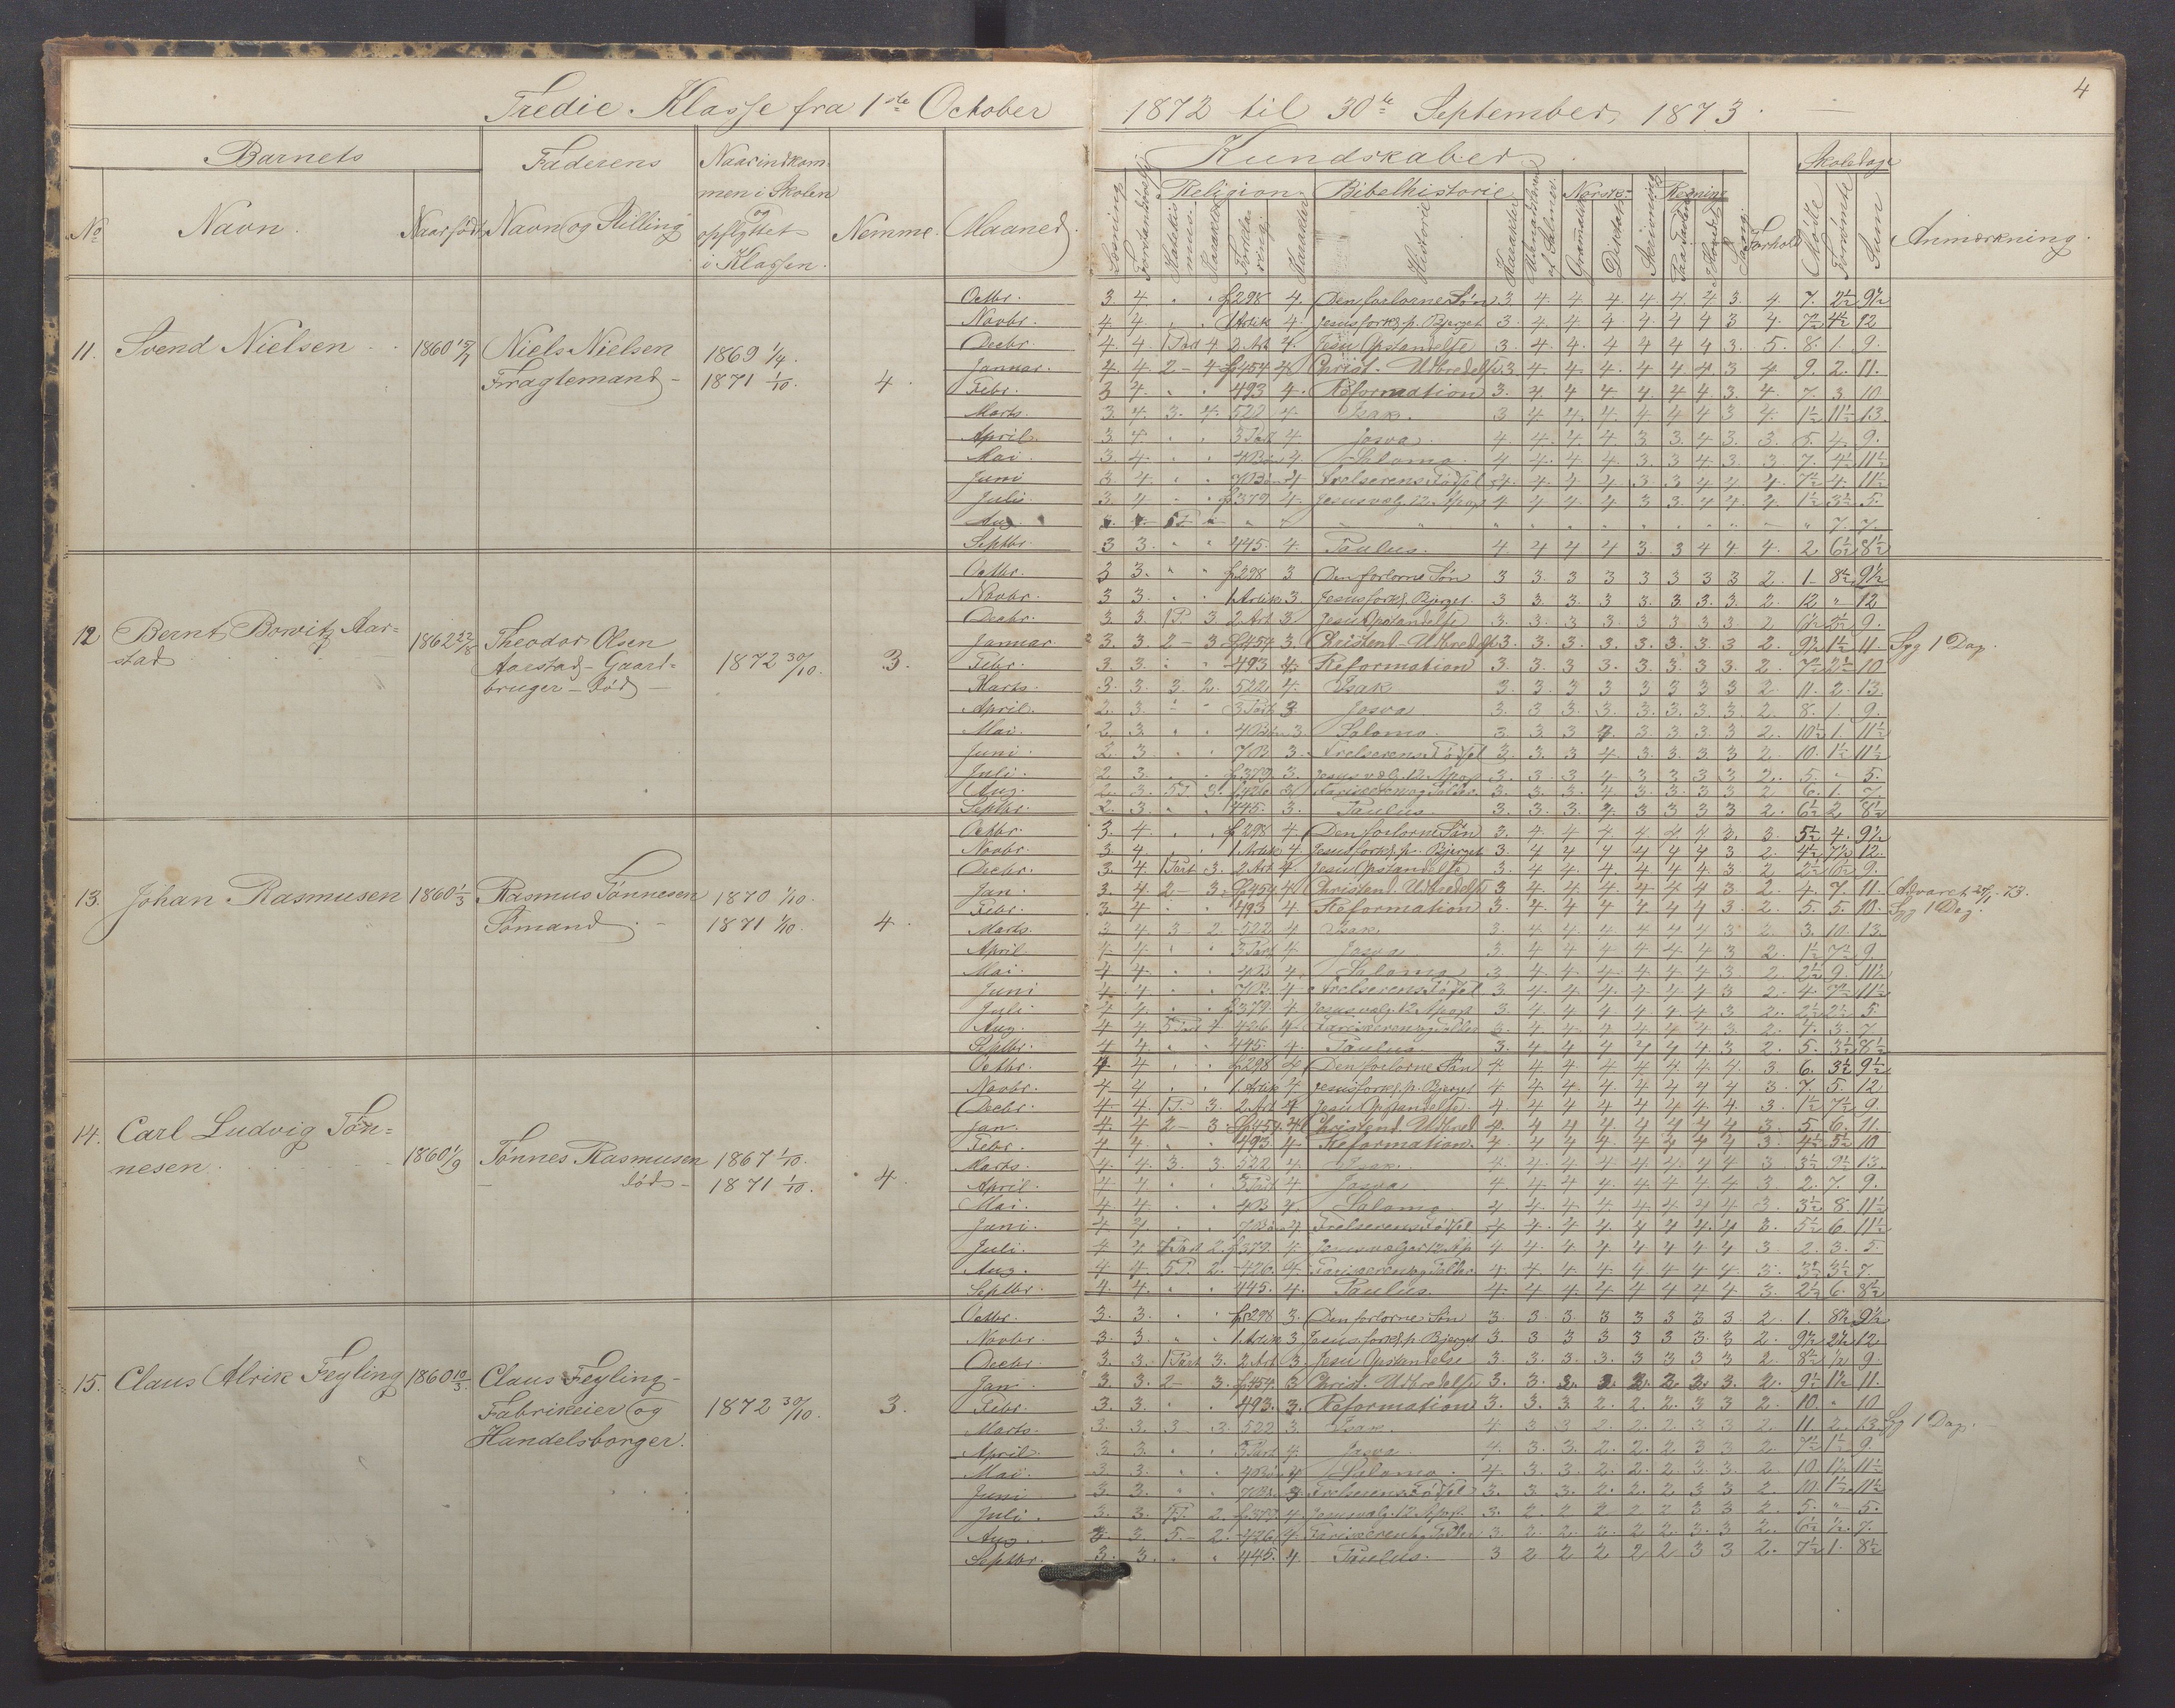 4
Tredie Klasse fra 1ste October 1872 til 30te September 1873.
Barnets Faderens Naar indkommen i Skolen og opflyttet i Klassen. Nemme. Maaned.
No Navn. Naar født Navn og Stilling
Kundskaber Skoledage
Læsning Religion Bibelhistorie Norsk Regning Sang. Forhold Mødte Forsømte Sum Anmærkning.
Karakter Historie Karakter Gramatik Diktat Skrivning
11. Svend Nielsen 1860 Niels Nielsen 1869 1/4.
Fragtemand - 1871 1/10. 4.
Octbr. 3 4 " " f298 4. Den forlorne Søn 3 4 4 4 4 4 4 3. 4. 7. 2½ 9½
Novbr. 4 4 " " 1 Artik 4. Jesus fork. p. Bjerget 3 4 4 4 4 4 4 3 4. 7½ 4½ 12
Decbr. 4 4 1 Part 4 2 Art 4. Jesu Opstandelse 3. 4 4 4 4 4 4 3. 5. 8. 1. 9.
Januar. 4. 4 2 - 4 f454 4 Christ. Udbredelse 3 4 4 4 4 4 4 3 4 9. 2. 11.
Febr. 3 4. " " 493 4. Reformation 3. 4 4 4 4 4 4 3. 4. 7. 3. 10
Marts. 3 4. 3. 4. 522 4. Isak. 3 4 4 4 4 4 4 3 4. 1½ 11½ 13.
April. 3 4. " " 3 Part 4 Josva. 4. 4. 4 4 3 3. 4 3. 3. 5. 4. 9.
Mai. 3. 4. 4 Salomo. 4 4 4 4. 3. 3 4 3. 3. 7. 4½ 11½
Juni 3 4. 4 Frelserens Fødsel 4. 4 4 4 3 3 4 4 4. 7½ 4. 11½
Juli 3 4 " " f379 4. Jesus valg. 12 Apop 4 4 4 4 3 3. 4 4. 4 1½ 3½ 5.
Aug. " 7. 7.
Septbr. 3 3. " " 445. 4. Paulus. 4. 4 4 4 3. 3 4 4 4. 2 6½ 8½
12 Bernt Bowitz Aar=
stad 1862 22/8 Theodor Olsen
Aarstad - Gaard=
bruger - død - 1872 30/10. 3.
Octbr. 3 3. " " f298 3 Den forlorne Søn 3 3. 3 3 3 3 3 3 2. 1. 8½ 9½
Novbr. 3 3. " " 1 Artik 3. Jesus fork. p. Bjerget. 3. 3. 3. 3 3. 3. 3. 3. 2. 12 " 12
Decbr. 3 3. 1 P. 3. 2 Art 3 Jesu Opstandelse 3. 3. 3. 3. 3 3 3. 3. 2 6½ 2½ 9.
Januar 3. 3. 2 - 3 f454 3. Christend. Udbredelse 3. 3. 3. 3. 3. 3. 3. 3 2. 9½ 1½ 11. Syg 1 Dag.
Febr. 3 3. " " 493 4. Reformation 3. 3. 3 3. 3. 3. 3. 3. 2. 7½ 2½ 10
Marts. 3. 3. 3. 2. 522 4. Isak 3. 3. 3 3 3 3 3 3 2. 11. 2. 13.
April. 2. 3. " " 3 Part 3. Josva 3. 3 3. 3. 3. 3. 3. 3. 2. 8. 1. 9.
Mai. 2. 3. 3. Salomo. 3 3 3 4. 3. 3. 3. 3 2. 10½ 1. 11½
Juni. 2. 3. 3. Frelserens Fødsel 3. 3. 3 4. 3. 3. 3 3 2 10. 1½ 11½
Juli. 2 3. " " f379. 3. Jesus valg. 12 Apop 3. 3. 3 4 3 3 3 3 2. 5. " 5.
Aug. 2. 3. 5 P. 3. f426 3 Farisæeren og Tolder. 3. 3. 3. 4 3. 3. 3 3 2 6. 1. 7.
Septbr. 2. 3. " " 445. 3. Paulus. 3. 3. 3. 4. 3 3 3 3 2. 6½ 2 8½
13. Johan Rasmusen 1860 1/3 Rasmus Tønnesen 1870 1/10.
Sømand. - 1871 1/10. 4.
Octbr. 3. 4. " " f298 4. Den forlorne Søn 3. 4 4 4 4 4 4 3. 3. 5½ 4. 9½
Novbr. 3. 4. " " 1 Artik 4 Jesus fork. p. Bjerget 3. 4 4 4 4 4 4 3 2. 4½ 7½ 12.
Decbr. 3. 4 1 Part 3. 2 Art 4. Jesu Opstandelse 3. 4 4 4. 4. 4 4. 3 2. 2½ 6½ 9.
Jan. 3. 4 2 - 3. f454 4 Christend. Udbredelse 3 4 4 4 4 4 4 3 2. 4. 7. 11. Advaret 24/1 73.
Febr. 3. 4. " " 493 4 Reformation 3. 4 4 4 4 4 4 3. 2. 5. 5. 10. Syg 1 Dag.
Marts. 3 4 3 - 2. 522 4 Isak. 3. 4 4 4 4 4 4 3 2. 3. 10. 13.
April 4 4 " " 3 Part 4 Josva 3. 4 4 4 4 4 4 3 2. 1½ 7½ 9.
Mai. 4 4 4. Salomo 3 4 4 4 4 4 4 3. 2. 2½ 9. 11½
Juni 4 4 4 Frelserens Fødsel 3 4 4 4 4 4 4 3 2. 4. 7½ 11½
Juli 4 4. " " f379. 4. Jesus valg. 12 Apop 3 4 4 4 4 4 4 3 2. 2½ 2½ 5.
Aug. 4 4 5 Part 4 426 4. Farisæeren og Tolder 3. 4. 4 4 4 4 4 3. 2. 4. 3. 7.
Septbr. 4 4. " " 445. 4. Paulus. 3. 4. 4 4 4 4 4. 3 2. 5. 3½ 8½
14. Carl Ludvig Tøn=
nesen. 1860 1/9 Tønnes Rasmusen 1867 1/10.
- død - 1871 1/10. 4.
Octbr. 4. 4 " " f298 4 Den forlorne Søn 4. 4 4 4 4 4 4. 4. 3. 6. 3½ 9½
Novbr. 4 4 " " 1 Artik 4 Jesus fork. p. Bjerget 4 4 4 4 4 4 4 4 3. 7. 5. 12
Decbr. 4 4. 1 P. 3. 2 Art 4 Jesu Opstandelse. 4. 4 4 4 4 4 4. 4. 3. 1½ 7½ 9.
Jan. 4. 4 2 - 3. f454 4 Christend. Udbred 4. 4 4 4 4 4 4 4 3. 5 6. 11.
Febr. 4 4. " " 493 4. Reformation. 4. 4 4 4 4 4 4 4 3. 4½ 5½ 10
Marts. 4. 4. 3. 3. 522. 4. Isak. 4. 4. 4 4 4 4. 4. 4 3. 3½ 9½ 13.
April. 4 4 " " 3 Part 4 Josva 4 4 4 4 4 4 4 4 3. 2. 7. 9.
Mai. 4 4. 4. Salomo 4 4. 4 4 4 4. 4 4 3. 3½ 8. 11½
Juni. 4 4. 4 Frelserens Fødsel 4 4. 4 4. 4 4 4. 4 3. 5½ 6. 11½
Juli. 4 4 Part 2. f379. 4. Jesus vælger 12 Ap 4 4. 4. 4. 4 4 4 4 3. 2. 3. 5.
Aug. 4 4. 5 P. 2. 426. 4. Farisæeren og Tolder. 4. 4. 4. 4. 4 4. 4 4. 3. 3½ 3½ 7.
Septbr. 4. 4. " " 445. 4. Paulus. 4. 4. 4. 4. 4 4. 4. 4. 3. 2½ 6. 8½
15. Claus Alrik Feyling 1860 10/3. Claus Feyling -
Fabrikeier og
Handelsborger. 1872 30/10. 3.
Octbr. 3. 3. " " f298 3. Den forlorne Søn 3. 3 3. 3 3 3. 3. 3 2. 1. 8½ 9½
Novbr. 3. 3. " " 1 Artik 3 Jesus fork. p. Bjerget 3 3 3 3 3 3 3. 3 2. 9½ 2½ 12
Decbr. 3. 3. 1 Part 3. 2 Art 3. Jesu Opstandelse 3. 3. 3. 3. 3 3 3 3 2. 8½ ½ 9.
Jan. 3. 3. 2 - 3. f454. 3 Christ. Udbredelse 3. 3. 3. 2. 2. 3. 3. 2. 9½ 1½ 11.
Febr. 3. 3. " " 493. 3. Reformation 3. 3. 3 2. 2. 2. 3 3 2. 10. " 10
Marts. 3. 3. 3 - 3. 522 3. Isak. 4. 3 3 2. 2. 2. 3 3 2. 11 2. 13 Syg 1 Dag.
April. 3 3. " " 3 Part 4. Josva. 4. 3. 3. 2. 2. 2 3 3 2. 7½ 1½ 9.
Mai. 3. 3. 4 Salomo. 4. 3. 3. 2. 2. 2 3. 3. 2. 10 1½ 11½
Juni 3. 3. 3 Frelserens Fødsel 3. 3 3. 2. 2. 2 3 3 2 10. 1½ 11½
Juli. 3. 3. P. 2. f379 4 Jesus valg. 12 Apop. 3. 2. 2 2 2 2 3 3 2. 5. " 5.
Aug. 3. 3. 5 - 2. 426. 4. Farisæeren og Tolder 3. 2. 2. 2. 2 2. 3. 3 2. 6½ ½ 7.
Septbr. 3. 3. " " 445. 4. Paulus. 3 2 2 2 2 2 3 3 2. 7½ 1. 8½